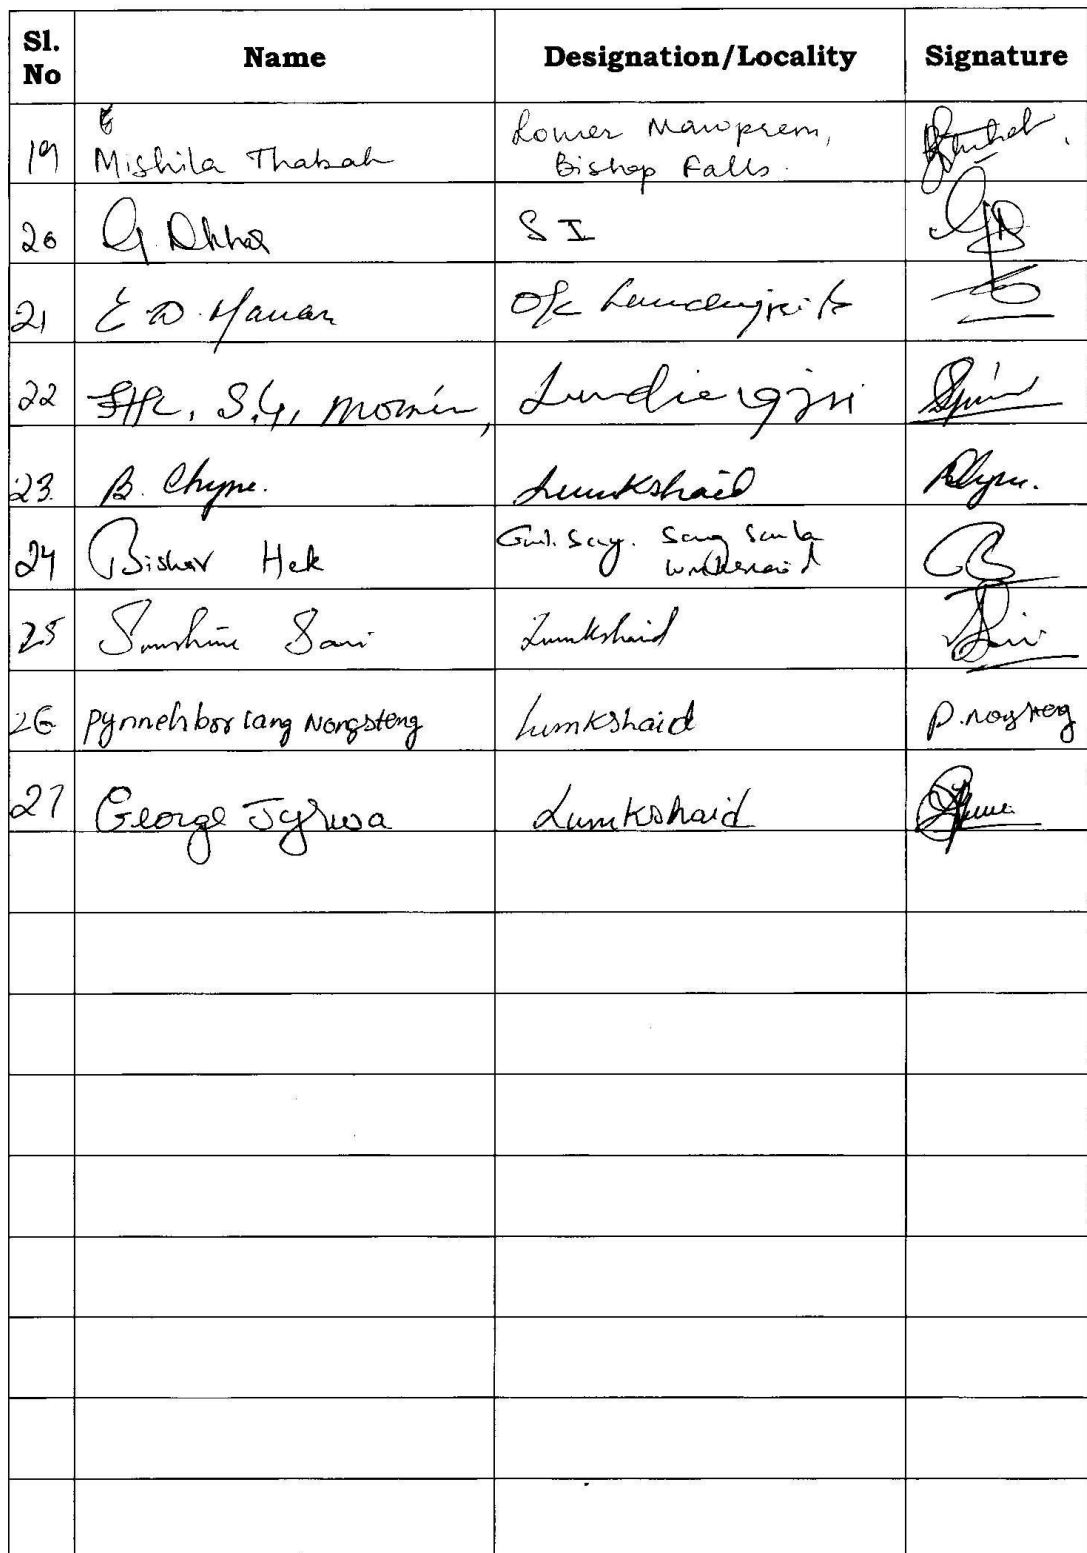 Sl. No Name Designation/Locality Signature
19 Mishila Thabah Lower Mawprem, Bishop Falls.
20 G. Dkhar S I
21 E D. Marran O/c
22 S.G. Momin,
23. B. Chyne. Lumkshaid
24 Bishar Hek Gnl. Secy.
25 Sunshine Sari Lumkshaid
26 Pynnehborlang Nongsteng Lumkshaid P. nogsteng
27 George Jyrwa Lumkshaid